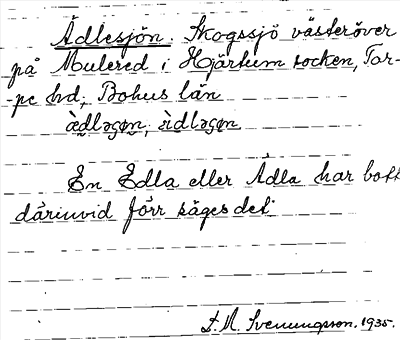 Ädlesjön. Skogssjö västeröver
på Mulered i Hjärtum socken, Tor-
-pe hd, Bohus län
ädləʂøn, ädləgøn
En Edla eller Ädla har bott
därinvid förr säges det